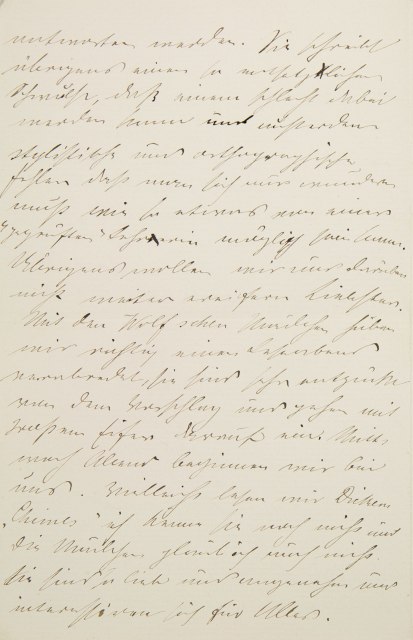 antworten werden. Sie schreibt
übrigens einen so entsetzlichen
Schwulst, daß einem schlecht dabei
werden kann und außerdem
stylistische und orthographische
Fehler daß man sich nur wundern
muß wie so etwas von einer
"geprüften" Lehrerin möglich sein kann.
Übrigens wollen wir uns darüber
nicht weiter ereifern Liebster.
Mit den Wolf'schen Mädchen haben
wir richtig einen Leseabend
verabredet, sie sind sehr entzückt
von dem Vorschlag und gehen mit
großem Eifer darauf ein. Mitt-
woch Abend beginnen wir bei
uns. Vielleicht lesen wir Dickens
"Chimes" ich kenne sie noch nicht und
die Mädchen glaub ich auch nicht.
Sie sind so lieb und angenehm und
interessieren sich für Alles.